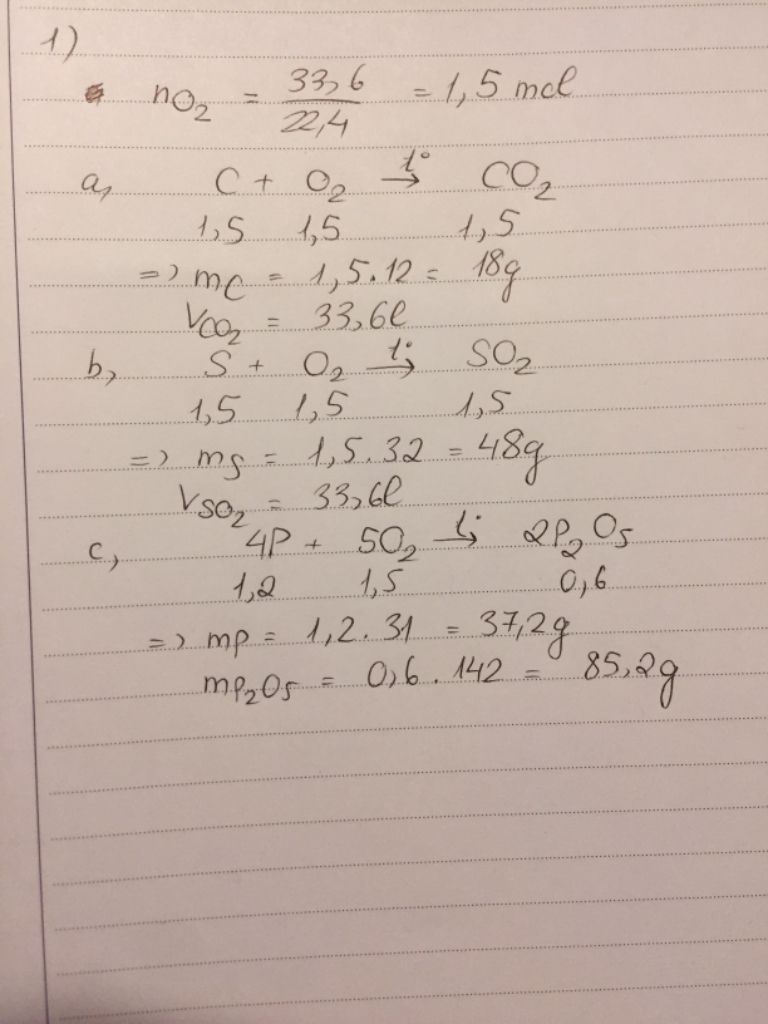 1)
nO2 = 33,6 / 22,4 = 1,5 mol
a, C + O2 t°→ CO2
1,5 1,5 1,5
=> mC = 1,5.12 = 18g
VCO2 = 33,6l
b, S + O2 t°→ SO2
1,5 1,5 1,5
=> mS = 1,5.32 = 48g
VSO2 = 33,6l
c, 4P + 5O2 t°→ 2P2O5
1,2 1,5 0,6
=> mP = 1,2.31 = 37,2g
mP2O5 = 0,6.142 = 85,2g